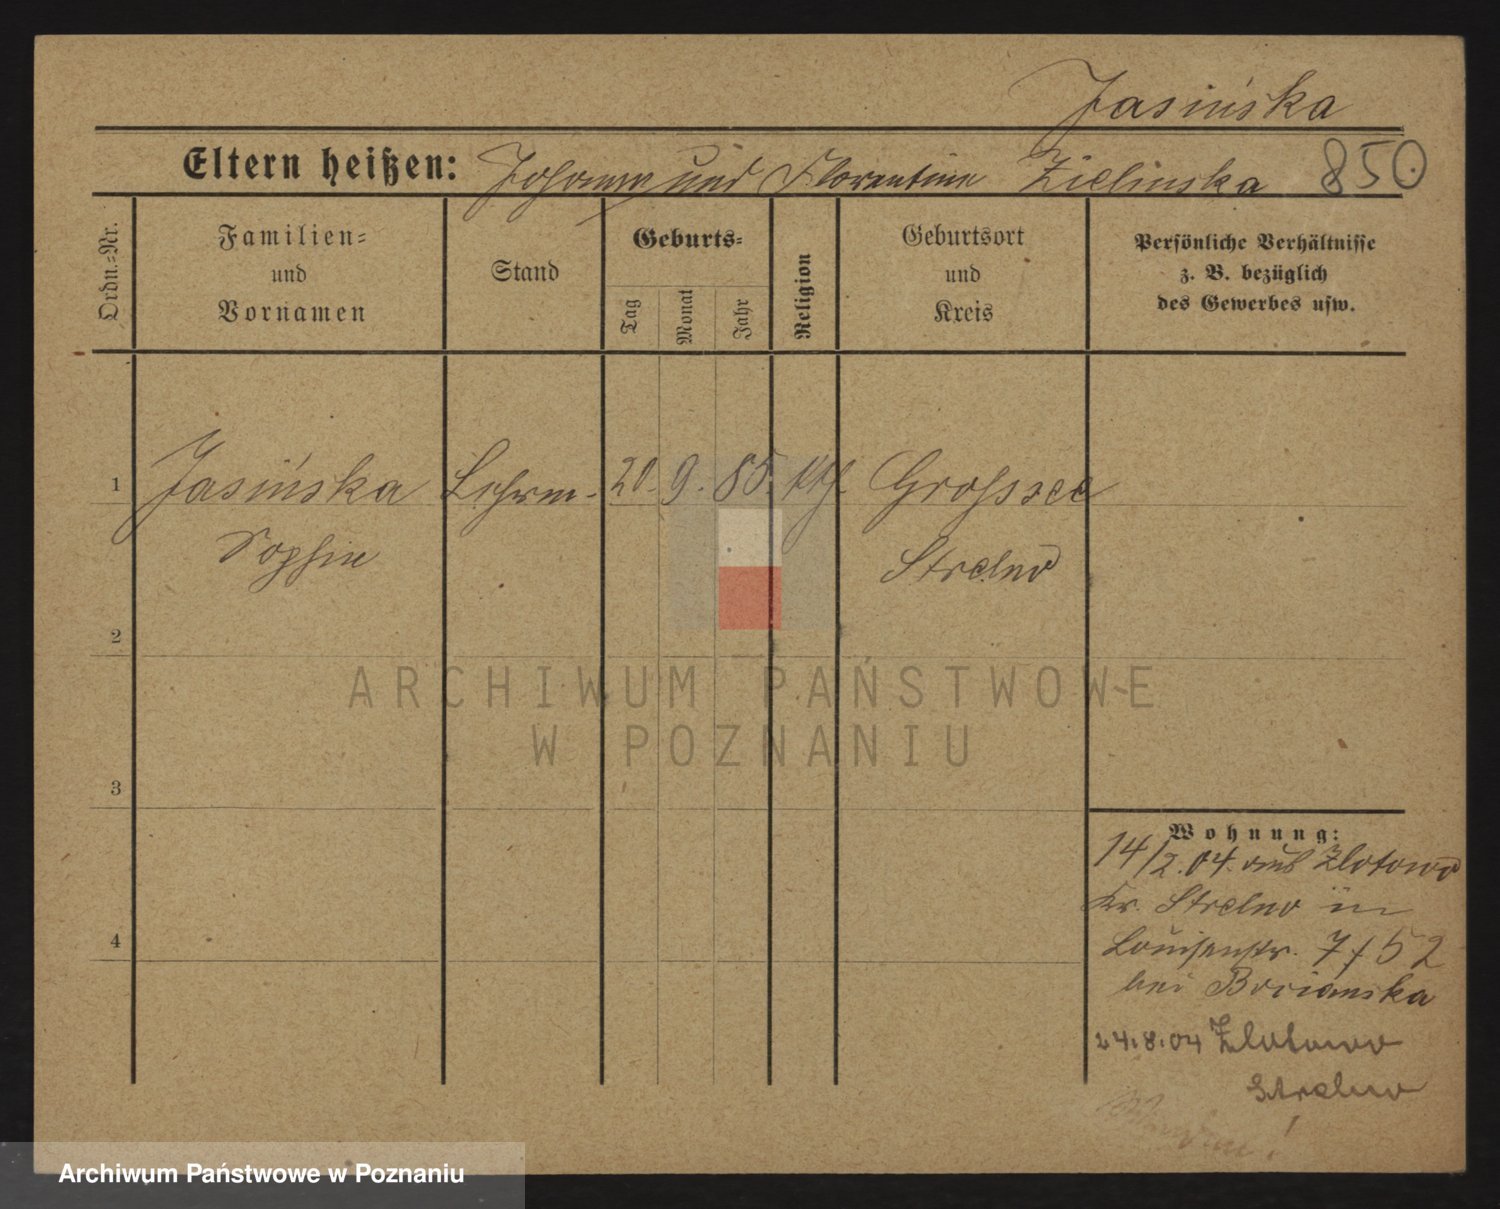 Jasińska
Eltern heißen: Johann und Florentine Zielinska 850
Ordn.-Nr.
Familien-
und
Vornamen
Stand
Geburts-
Tag
Monat
Jahr
Religion
Geburtsort
und
Kreis
Persönliche Verhältnisse
z. B. bezüglich
des Gewerbes usw.
1 Jasińska 20. 9. 85. kth. Grosssee
Sophie Strelno
2
ARCHIWUM PAŃSTWOWE
W POZNANIU
3
Wohnung:
14/2.04. aus Zlotowo
Kr. Strelno in
Louisenstr. 7/52
bei Bocianska
4
24.8.04 Zlotowo
Strelno
Archiwum Państwowe w Poznaniu